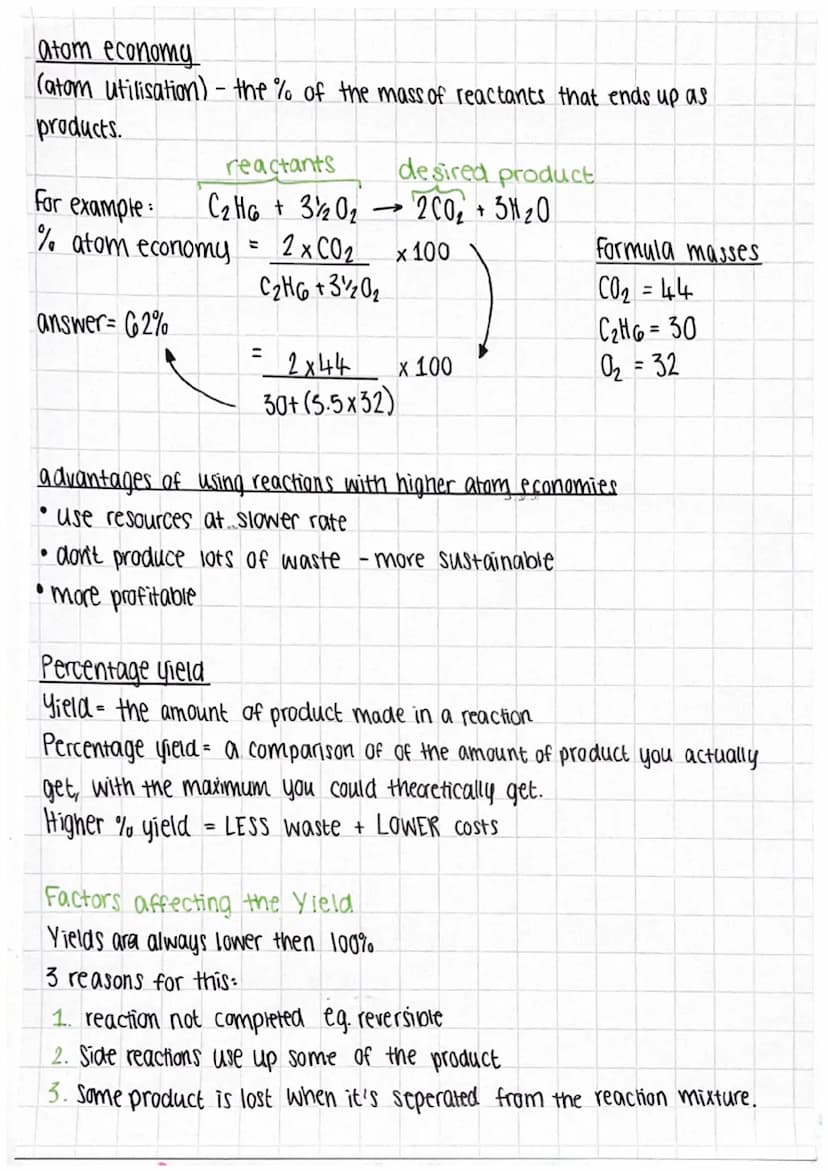 atom economy
(atom utilisation) - the % of the mass of reactants that ends up as
products.
reactants desired product
For example: C2H6 + 3½O2 → 2CO2 + 3H2O
% atom economy = 2 x CO2 x 100 formula masses
C2H6 + 3½O2 CO2 = 44
answer = 62% C2H6 = 30
= 2 x 44 x 100 O2 = 32
30 + (3.5 x 32)
advantages of using reactions with higher atom economies
• use resources at slower rate
• don't produce lots of waste - more sustainable
• more profitable
Percentage yield
Yield = the amount of product made in a reaction
Percentage yield = a comparison of of the amount of product you actually
get, with the maximum you could theoretically get.
Higher % yield = LESS waste + LOWER costs
Factors affecting the Yield
Yields are always lower then 100%
3 reasons for this:
1. reaction not completed eg. reversible
2. Side reactions use up some of the product
3. Some product is lost when it's seperated from the reaction mixture.